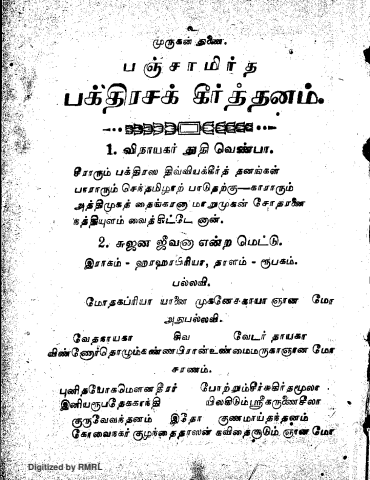 உ
முருகன் துணை.
பஞ்சாமிர்த
பக்திரசக் கீர்த்தனம்.
1. விநாயகர் துதி வெண்பா.
சீராரும் பக்திரஸ திவ்வியகீர்த் தனங்கள்
பாராரும் செந்தமிழாற் பாடுதற்கு—காராரும்
அத்திமுகத் தைங்கரனா மாறுமுகன் சோதரனை
சுத்தியுளம் வைத்திட்டே னான்.
2. சுஜன ஜீவனா என்ற மெட்டு.
இராகம் - ஹாஹாபிரியா, தாளம் - ரூபகம்.
பல்லவி.
மோதகப்ரியா யானை முகனேசகாயா ஞான மோ
அநுபல்லவி.
வேதகாயகா சிவ வேடர் தாயகா
விண்ணோர்தொழும்கண்ணபிரான்உண்மைமருகாஞான மோ
சரணம்.
புனிதயோகமௌனதீரர் போற்றும்சீர்சுகிர்தமூலா
இனியரூபதேககாந்தி யிலகிடும்ஸ்ரீகருணைசீலா
குருவேவந்தனம் இதோ குணமாய்தந்தனம்
கோவைநகர் குழந்தைதாஸன் கவிதைசூடும் ஞான மோ
Digitized by RMRL